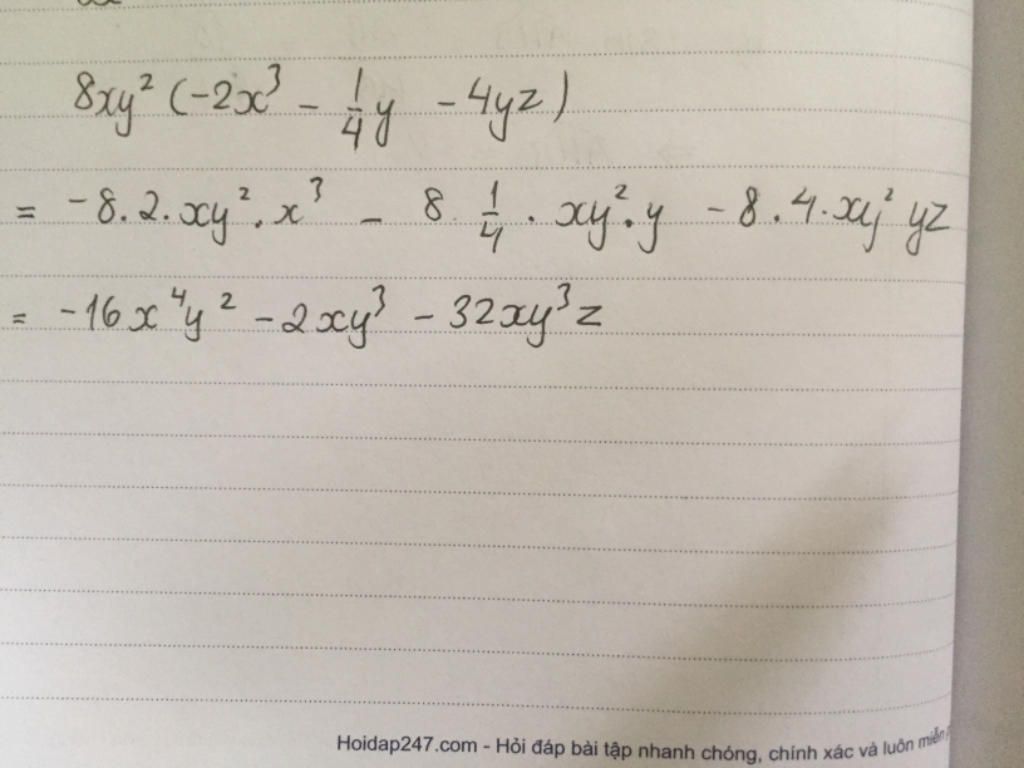 8xy² (-2x³ - 1/4 y - 4yz)
= -8.2.xy².x³ - 8. 1/4 . xy².y - 8.4.xy² yz
= -16x⁴y² - 2xy³ - 32xy³z
Hoidap247.com - Hỏi đáp bài tập nhanh chóng, chính xác và luôn miễn